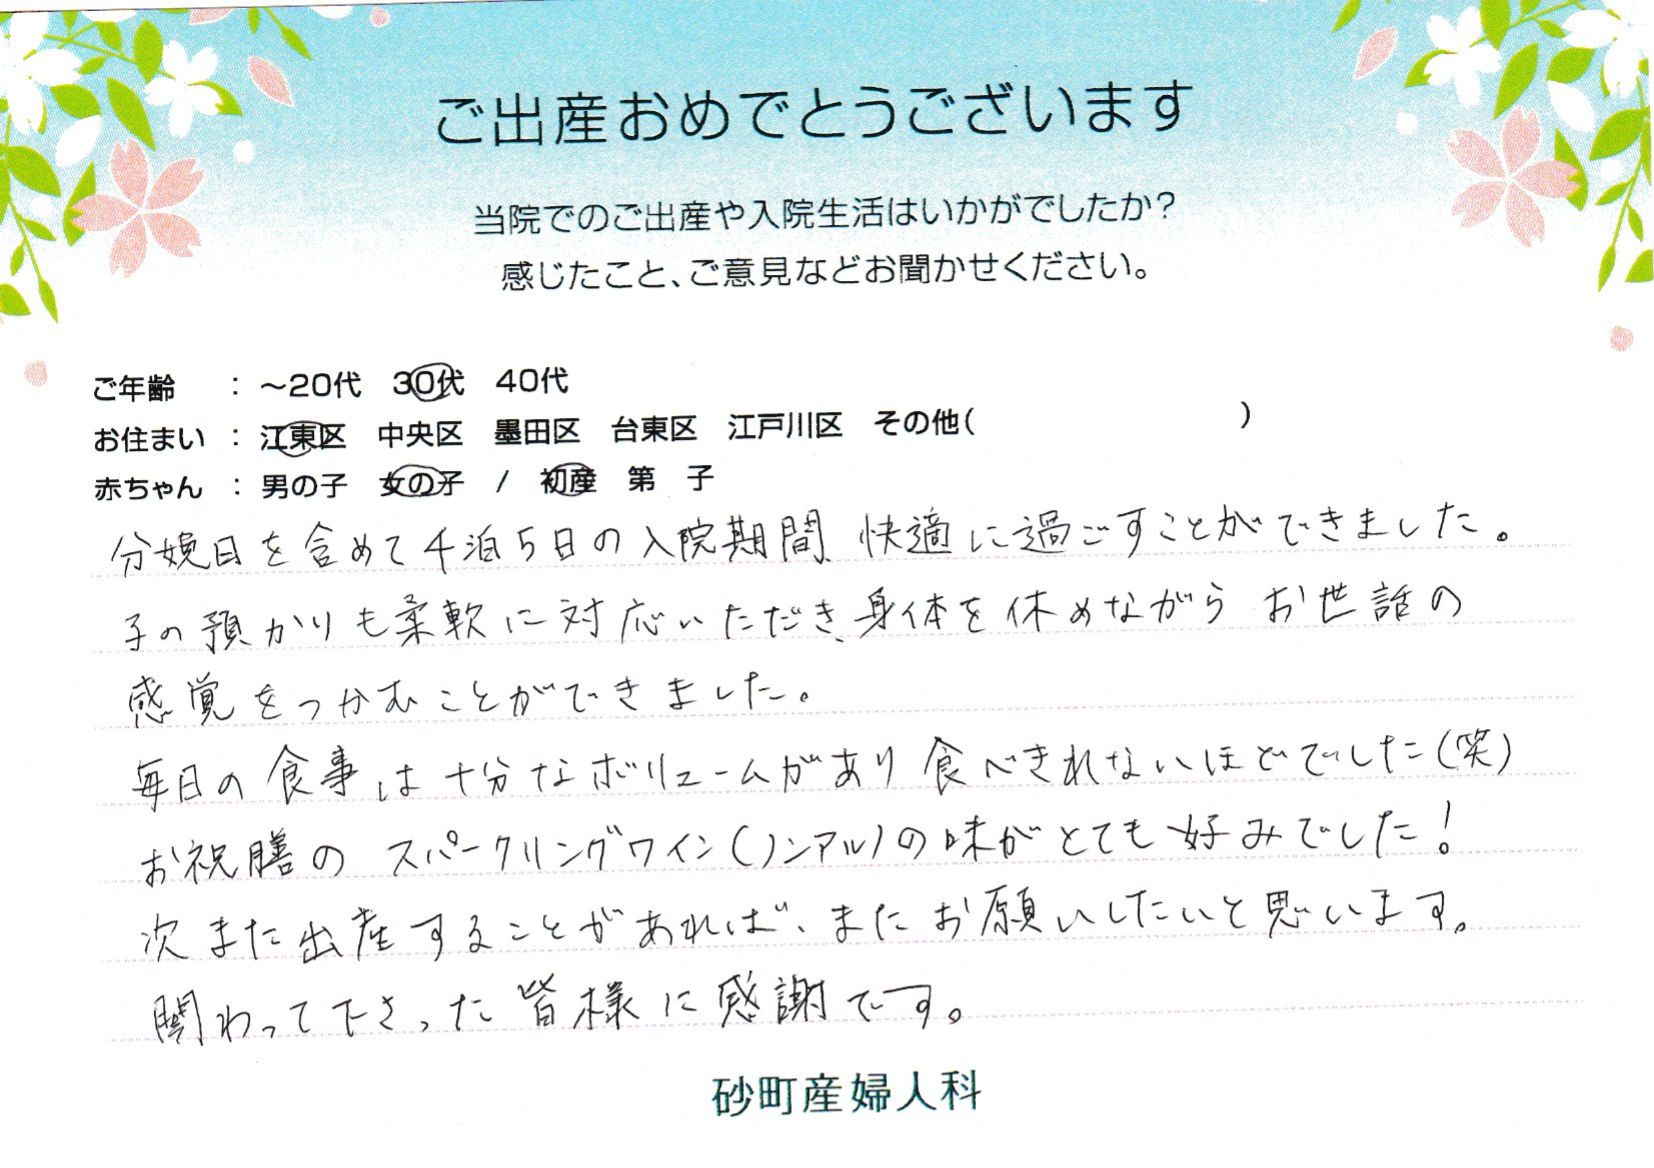 ご出産おめでとうございます
当院でのご出産や入院生活はいかがでしたか?
感じたこと、ご意見などお聞かせください。
ご年齢 : ~20代 30代 40代
お住まい : 江東区 中央区 墨田区 台東区 江戸川区 その他( )
赤ちゃん : 男の子 女の子 / 初産 第 子
分娩日を含めて4泊5日の入院期間、快適に過ごすことができました。
子の預かりも柔軟に対応いただき、身体を休めながらお世話の
感覚をつかむことができました。
毎日の食事は十分なボリュームがあり食べきれないほどでした(笑)
お祝膳のスパークリングワイン(ノンアル)の味がとても好みでした!
次また出産することがあれば、またお願いしたいと思います。
関わって下さった皆様に感謝です。
砂町産婦人科